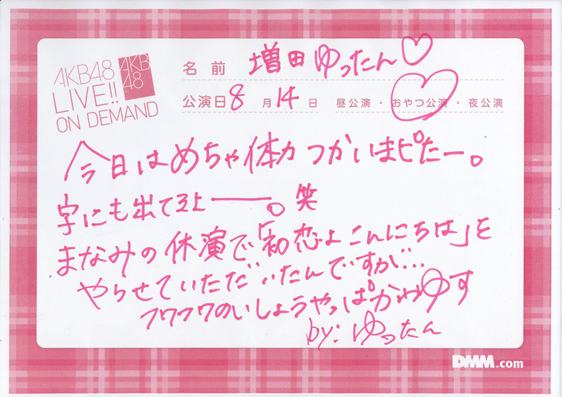 AKB48
LIVE!!
ON DEMAND
AKB
48
名前 増田ゆったん♡
公演日 8月14日 昼公演・おやつ公演・夜公演
今日はめちゃ体力つかいまピたー。
字にも出てるよ――。笑
まなみの休演で「初恋よこんにちは」を
やらせていただいたんですが…
フワフワのいしょうやっぱかわゆす
by:ゆったん
DMM.com